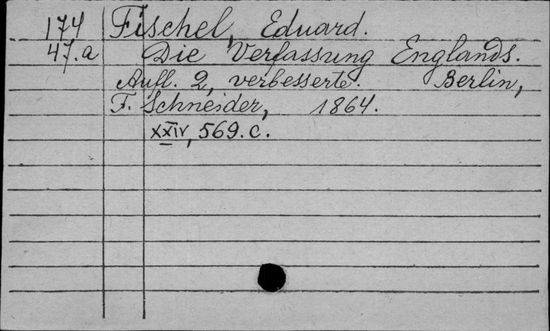 174 Fischel, Eduard.
47.a Die Verfassung Englands.
Aufl. 2, verbesserte. Berlin,
F. Schneider, 1864.
XXIV, 569.c.